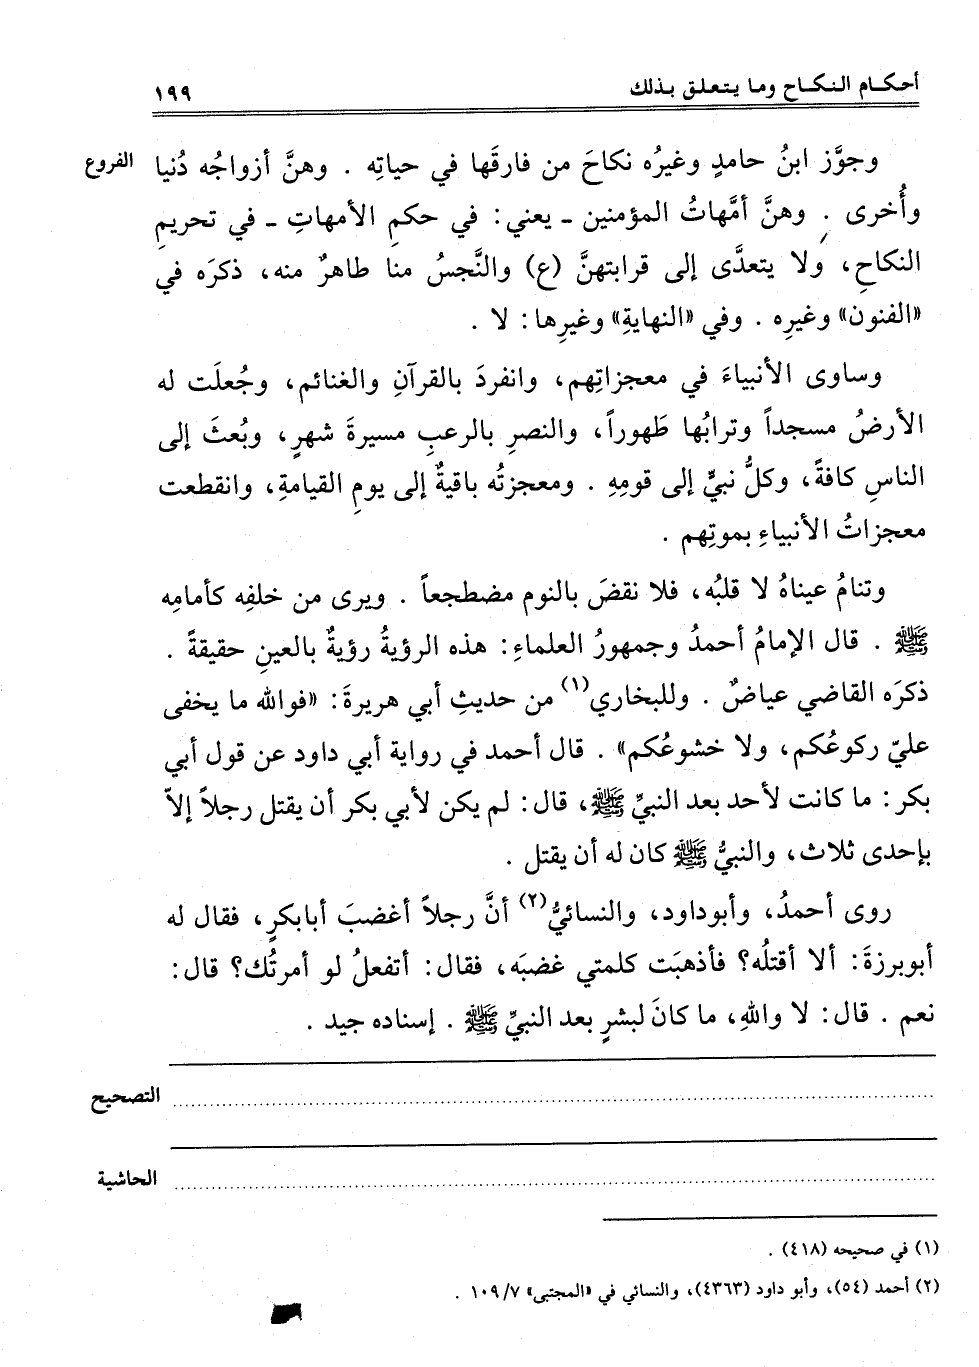 أحكام النكاح وما يتعلق بذلك ١٩٩
وجوَّز ابنُ حامدٍ وغيرُه نكاحَ من فارقَها في حياتِه . وهنَّ أزواجُه دُنيا الفروع
وأُخرى . وهنَّ أمَّهاتُ المؤمنين ـ يعني: في حكمِ الأمهاتِ ـ في تحريمِ
النكاحِ، ولا يتعدَّى إلى قرابتهنَّ (ع) والنَّجسُ منا طاهرٌ منه، ذكرَه في
«الفنون» وغيرِه . وفي «النهايةِ» وغيرِها: لا .
وساوى الأنبياءَ في معجزاتِهم، وانفردَ بالقرآنِ والغنائم، وجُعلَت له
الأرضُ مسجداً وترابُها طَهوراً، والنصرِ بالرعبِ مسيرةَ شهرٍ، وبُعثَ إلى
الناسِ كافةً، وكلُّ نبيٍّ إلى قومِهِ . ومعجزتُه باقيةٌ إلى يومِ القيامةِ، وانقطعت
معجزاتُ الأنبياءِ بموتِهم .
وتنامُ عيناهُ لا قلبُه، فلا نقضَ بالنوم مضطجعاً . ويرى من خلفِه كأمامِه
ﷺ . قال الإمامُ أحمدُ وجمهورُ العلماءِ: هذه الرؤيةُ رؤيةٌ بالعينِ حقيقةً .
ذكرَه القاضي عياضٌ . وللبخاري(١) من حديثِ أبي هريرةَ: «فوالله ما يخفى
عليّ ركوعُكم، ولا خشوعُكم» . قال أحمد في رواية أبي داود عن قول أبي
بكر: ما كانت لأحد بعد النبيِّ ﷺ، قال: لم يكن لأبي بكر أن يقتل رجلاً إلاّ
بإحدى ثلاث، والنبيُّ ﷺ كان له أن يقتل .
روى أحمدُ، وأبوداود، والنسائيُّ(٢) أنَّ رجلاً أغضبَ أبابكرٍ، فقال له
أبوبرزةَ: ألا أقتلُه؟ فأذهبَت كلمتي غضبَه، فقال: أتفعلُ لو أمرتُك؟ قال:
نعم . قال: لا واللهِ، ما كانَ لبشرٍ بعد النبيِّ ﷺ . إسناده جيد .
التصحيح
الحاشية
(١) في صحيحه (٤١٨) .
(٢) أحمد (٥٤)، وأبو داود (٤٣٦٣)، والنسائي في «المجتبى» ١٠٩/٧ .